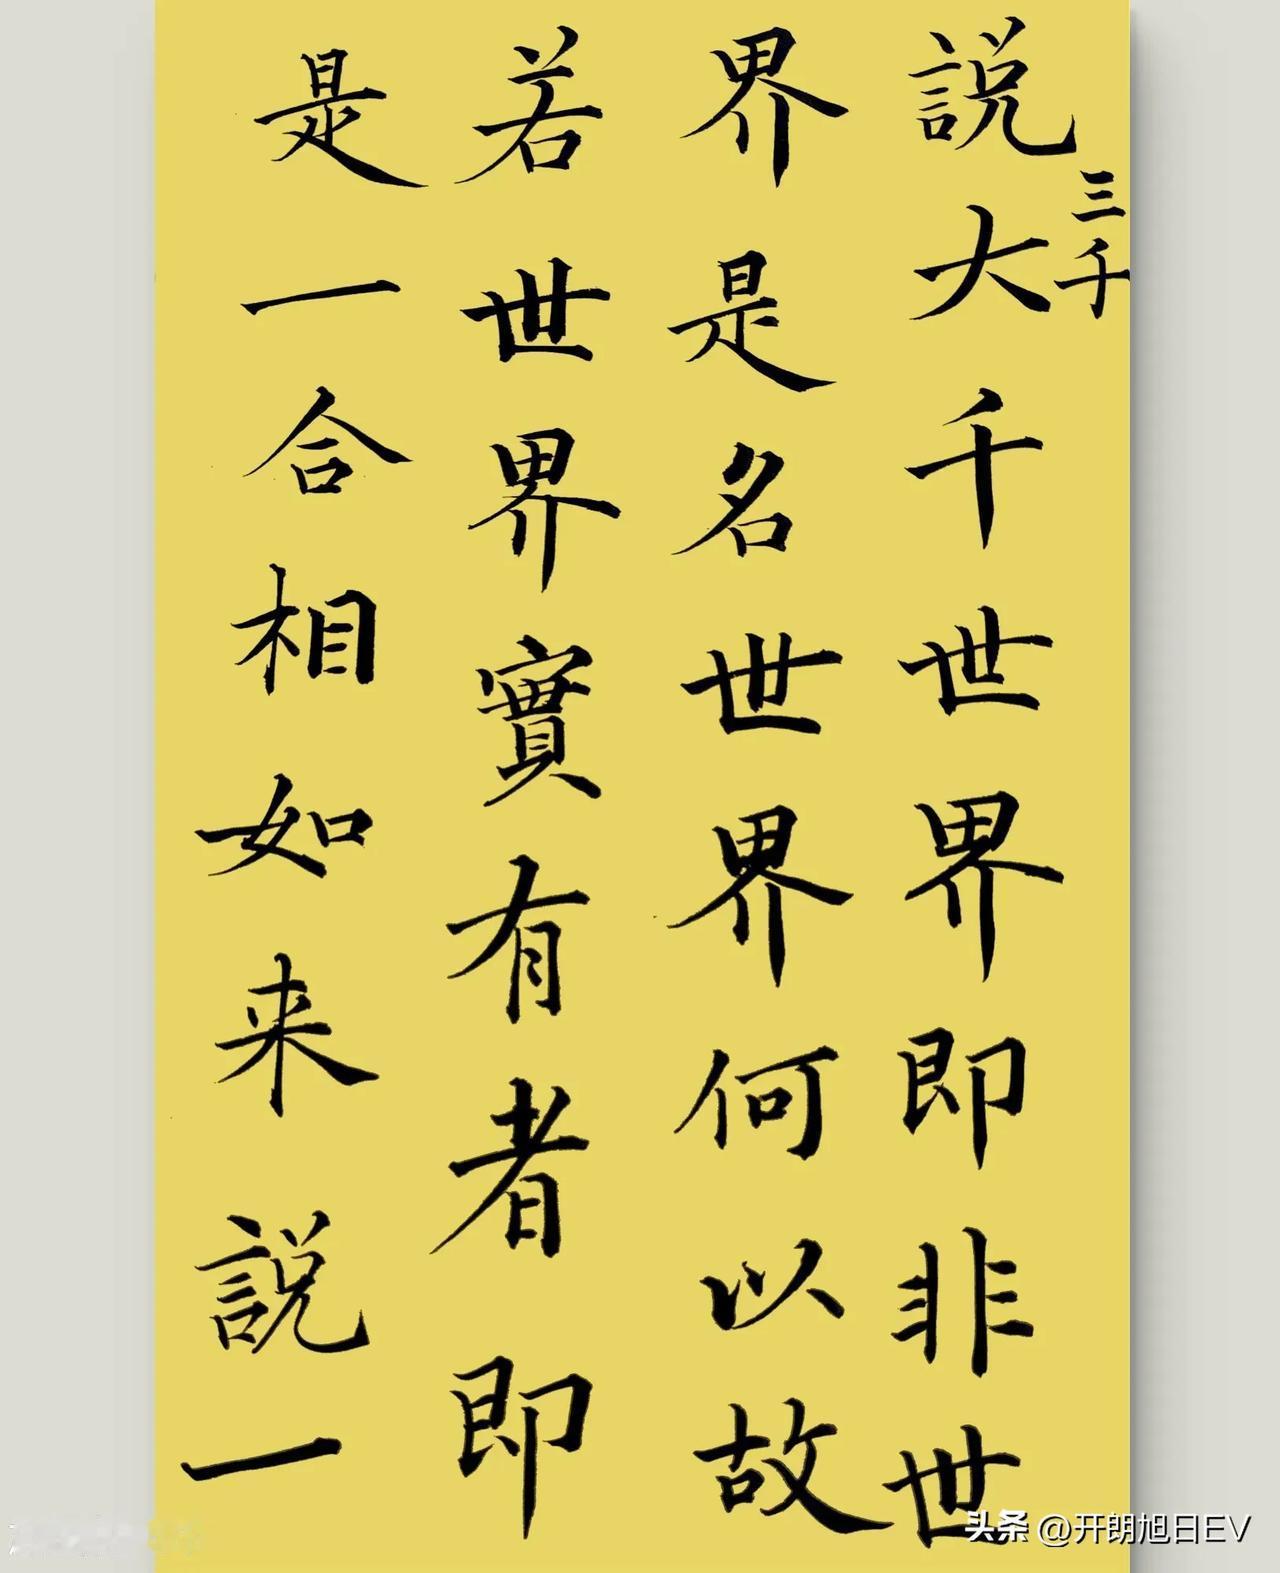 説大千世界即非世
三千
界是名世界何以故
若世界實有者即
是一合相如来説一
头条 @开朗旭日EV